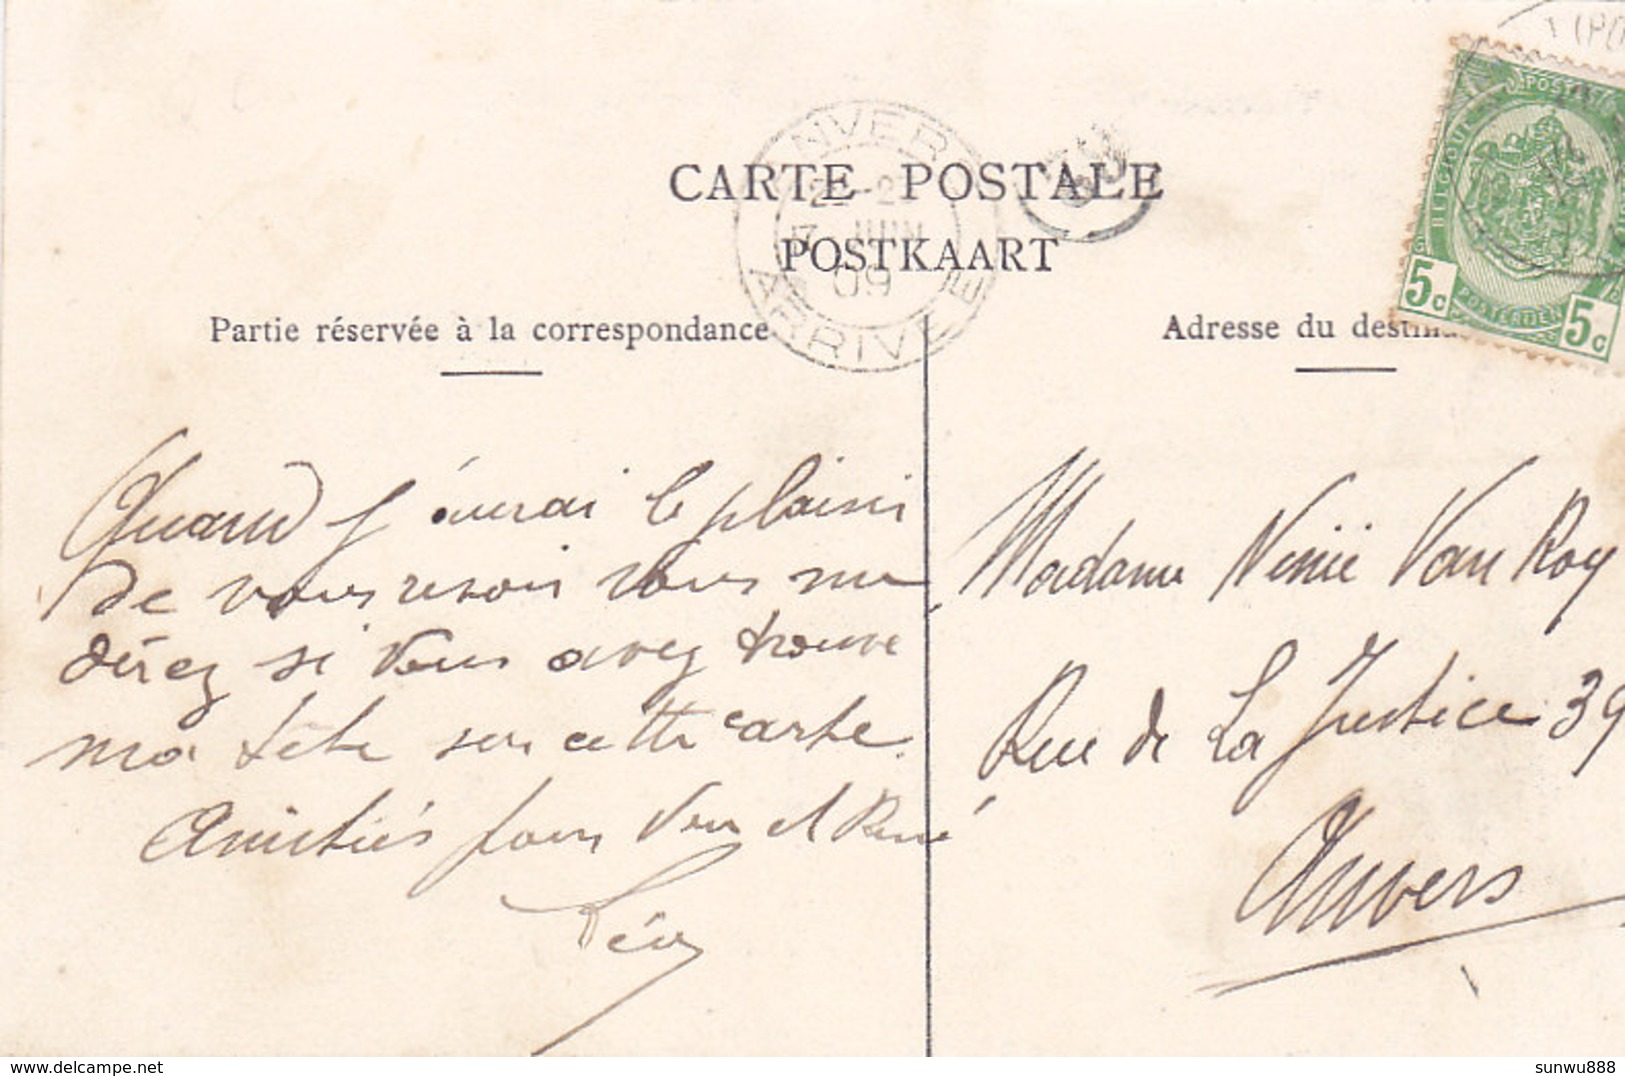 CARTE POSTALE
POSTKAART
ANVERS
7 JUIN
09
ARRIVEE
BELGIQUE
POST
POSTERIJEN
5c 5c
Partie réservée à la correspondance
Adresse du destina
Quand j'aurai le plaisir
de vous revoir vous me
direz si vous avez trouve
ma tête sur cette carte.
Amitiés pour Vous et René
Madame Van Roy
Rue de La Justice 39
Anvers
sunwu888